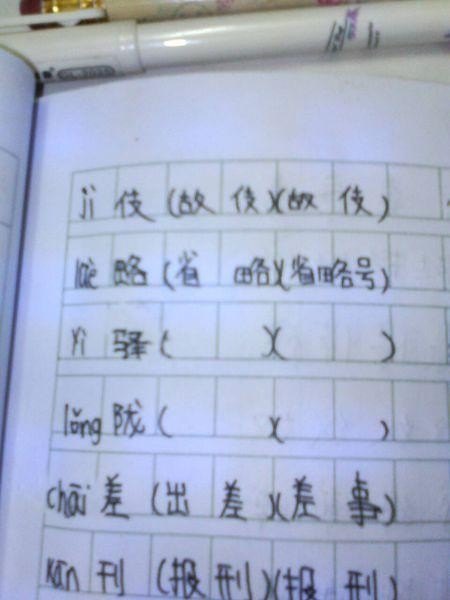 jì 伎 (故伎)(故伎)
lüè 略 (省略)(省略号)
yì 驿 ( )( )
lǒng 陇 ( )( )
chāi 差 (出差)(差事)
kān 刊 (报刊)(报刊)